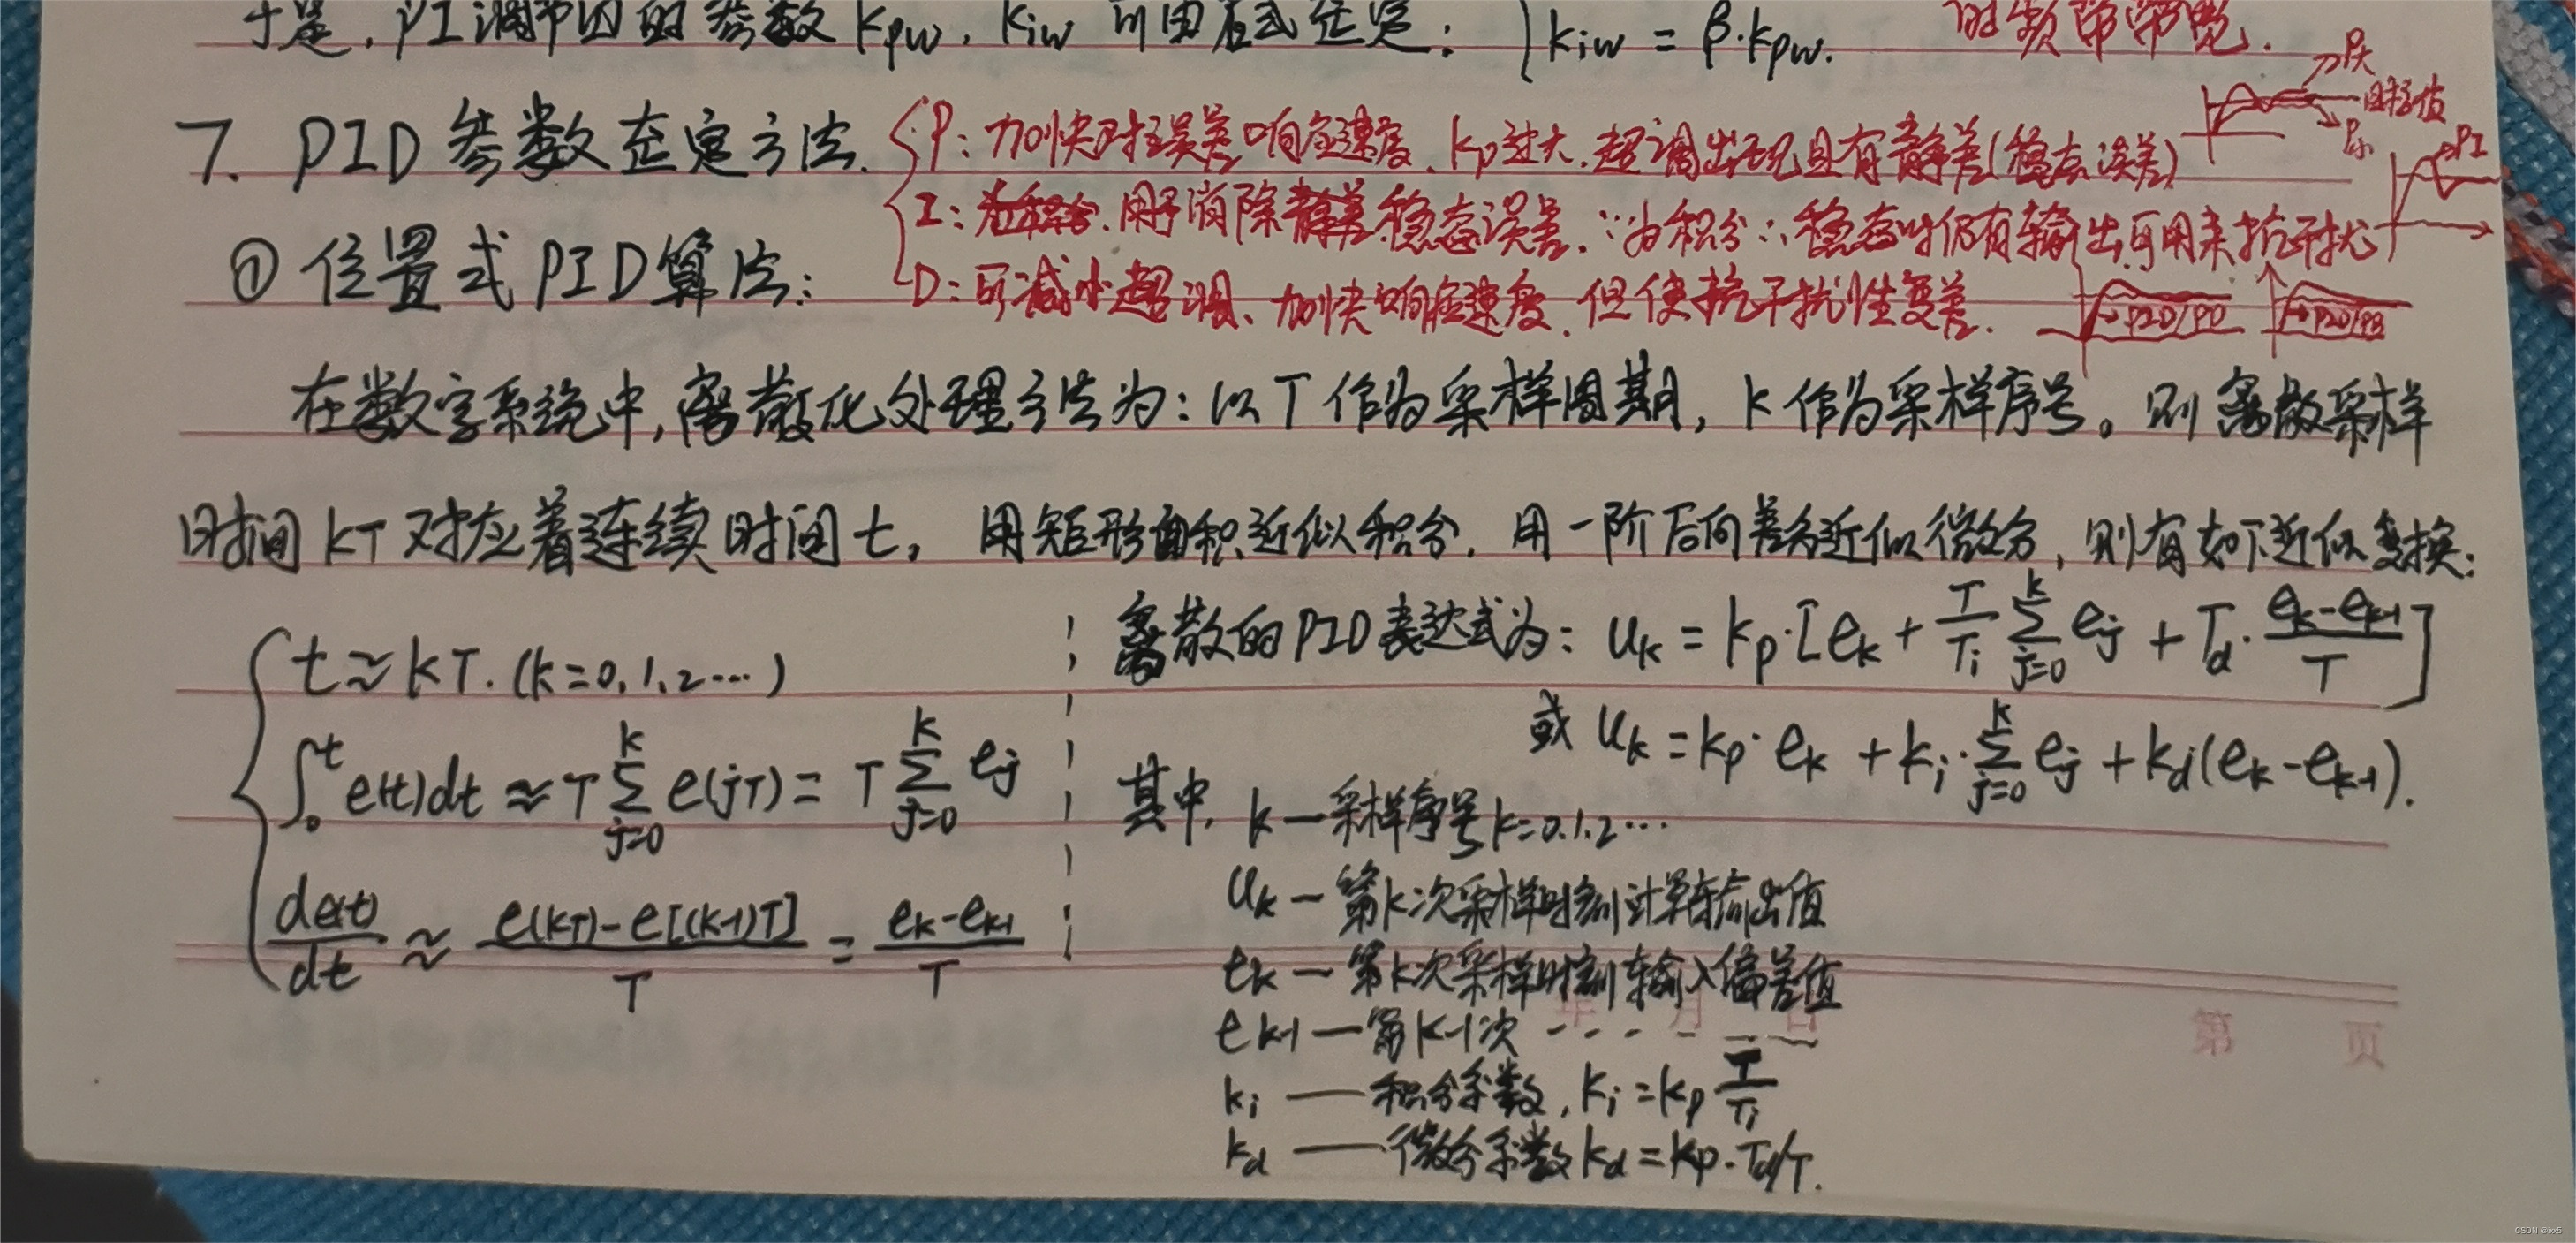 于是,PI调节器的参数 kpw, kiw 可由右式整定: kiw = β·kpw. 的频带带宽.
7. PID 参数整定方法. P: 加快对误差响应速度, kp过大, 超调出现且有静差(稳态误差)
P大 目标值 P小 PI
I: 用于消除静差稳态误差, ∵为积分∴稳态时仍有输出可用来抗干扰
① 位置式 PID 算法:
D: 可减小超调、加快响应速度, 但使抗干扰性变差. PID/PD PID/PD
在数字系统中,离散化处理方法为: 以 T 作为采样周期, k 作为采样序号。则离散采样
时间 kT 对应着连续时间 t, 用矩形面积近似积分, 用一阶后向差分近似微分, 则有如下近似变换:
t ≈ kT. (k=0,1,2…)
∫₀ᵗ e(t)dt ≈ T Σ_{j=0}^{k} e(jT) = T Σ_{j=0}^{k} ej
de(t)/dt ≈ (e(kT)-e[(k-1)T])/T = (ek-ek-1)/T
离散的PID表达式为: uk = kp·[ek + T/Ti Σ_{j=0}^{k} ej + Td·(ek-ek-1)/T]
或 uk = kp·ek + ki·Σ_{j=0}^{k} ej + kd(ek-ek-1).
其中, k—采样序号 k=0,1,2…
uk—第k次采样时刻计算输出值
ek—第k次采样时刻输入偏差值
ek-1—第k-1次 - - - - ~
ki——积分系数, Ki=kp T/Ti
kd——微分系数 kd=kp·Td/T.
年 月 日
第 页
CSDN